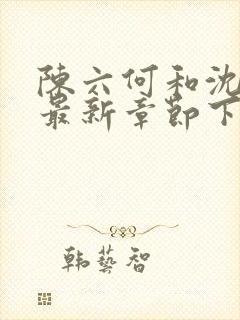 陳六何和沈
最新章節下
韩藝智